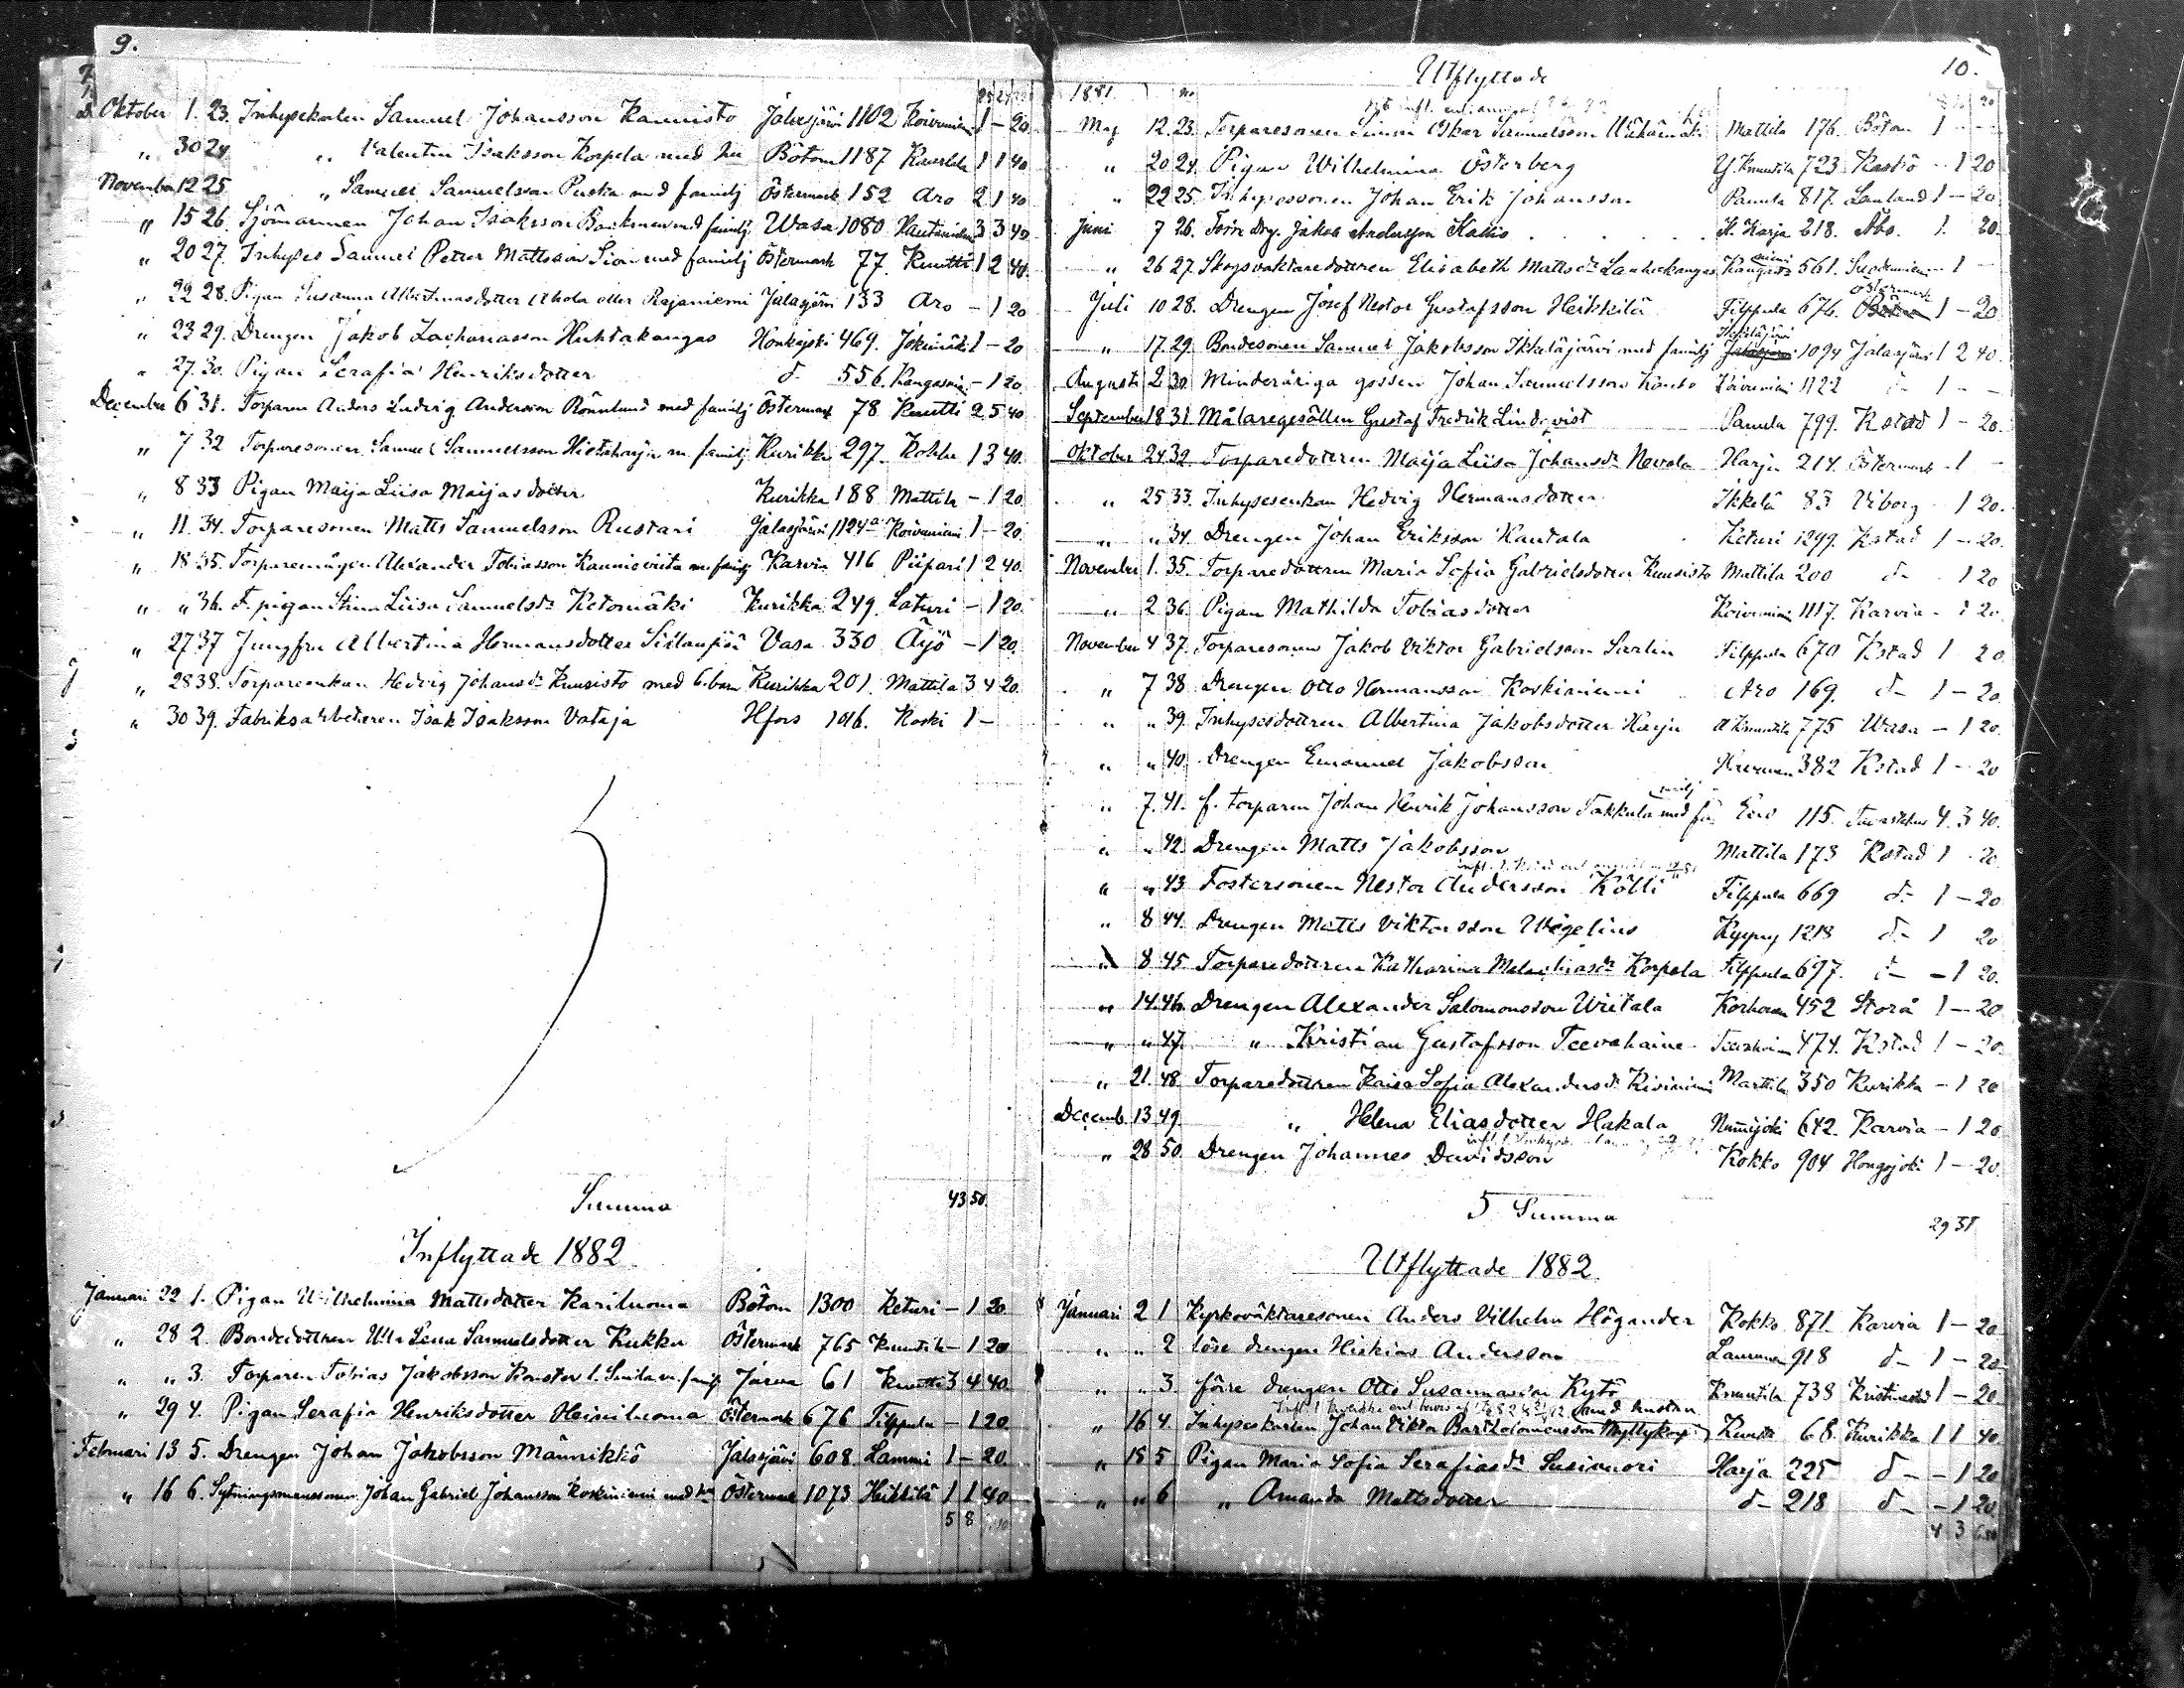 9.
Oktober 1. 23. Inhysekarlen Samuel Johansson Kannisto Jalasjärvi 1102 Koivuniemi 1 - 20
„ 30 24 „ Valentin Isaksson Korpela med hu Bötom 1187 1 1 40
November 12 25 „ Samuel Samuelsson med familj Östermark 152 Aro 2 1 40
„ 15 26. Sjömannen Johan Isaksson med familj Wasa 1080 3 3 40
„ 20 27. Inhyses Samuel Petter Mattsson Sion med familj Östermark 77. Knutti 1 2 40.
„ 22 28. Pigan Susanna Albertinasdotter Ahola eller Rajaniemi Jalasjärvi 133 Aro - 1 20
„ 23 29. Drengen Jakob Zachariasson Huhtakangas Honkajoki 469. 1 - 20
„ 27. 30. Pigan Serafia Henriksdotter d- 556. - 1 20
December 6 31. Torparen Anders Ludvig Andersson Rönnlund med familj Östermark 78 Knutti 2 5 40
„ 7 32 Torparesonen Samuel Samuelsson Hietaharju m. familj Kurikka 297. Kokko 1 3 40.
„ 8 33 Pigan Maija Liisa Maijasdotter Kurikka 188 Mattila - 1 20
„ 11. 34. Torparesonen Matts Samuelsson Rustari Jalasjärvi 1124a Koivuniemi 1 - 20.
„ 18 35. Torparemågen Alexander Tobiasson m. familj Karvia 416 Piipari 1 2 40.
„ „ 36. F. pigan Stina Liisa Samuelsdr Ketomäki Kurikka 249. Laturi - 1 20.
„ 27 37 Jungfru Albertina Hermansdotter Vasa 330 Äijö - 1 20.
„ 28 38. Torpareenkan Hedvig Johansdr Kuusisto med 6. barn Kurikka 201. Mattila 3 4 20.
„ 30 39. Fabriksarbetaren Isak Isaksson Vataja Hfors 1016. Koski 1 -
Summa 43 50.
Inflyttade 1882
Januari 22 1. Pigan Wilhelmina Mattsdotter Kariluoma Bötom 1300 Keturi - 1 20
„ 28 2. Bondedottren Ulr. Lena Samuelsdotter Kukku Östermark 765 Knuutila - 1 20
„ „ 3. Torparen Tobias Jakobsson m. familj 61 Knutti 3 4 40.
„ 29 4. Pigan Serafia Henriksdotter Heiniluoma Östermark 676 Filppula - 1 20
Februari 13 5. Drengen Johan Jakobsson Männikkö Jalasjärvi 608 Lammi 1 - 20
„ 16 6. Sytningsmanssonen Johan Gabriel Johansson Koskiniemi med hu Östermark 1073 Heikkilä 1 1 40
5 8
Utflyttade 10.
1881.
Maj 12. 23. Torparesonen Simon Oskar Samuelsson Mattila 176. Bötom 1 - -
„ 20 24. Pigan Wilhelmina Österberg Y. Knuutila 723 Kaskö - 1 20
„ 22 25. Inhysessonen Johan Erik Johansson 817. 1 - 20
Juni 7 26. Förre drg. Jakob Andersson Kallio K. Harja 218. Åbo. 1. 20.
„ 26 27. Skogsvaktaredottren Elisabeth Mattsdr 561. - 1 -
Juli 10 28. Drengen Josef Nestor Gustafsson Heikkilä Filppula 676. Östermark 1 - 20
„ 17. 29. Bondesonen Samuel Jakobsson Ikkeläjärvi med familj Ikkeläjärvi 1094 Jalasjärvi 1 2 40.
Augusti 2 30. Minderåriga gossen Johan Samuelsson Koivuniemi 1122 d- 1 - -
September 18 31. Målaregesällen Gustaf Fredrik Lindqvist Panula 799. Kstad 1 - 20.
Oktober 24 32 Torparedottren Maija Liisa Johansdr Nevala Harju 214. Östermark - 1 -
„ 25 33. Inhysesenkan Hedvig Hermansdotter Ikkelä 83 Viborg - 1 20.
„ „ 34. Drengen Johan Eriksson Rautala Keturi 1299. Kstad 1 - 20.
November 1. 35. Torparedottren Maria Sofia Gabrielsdotter Kuusisto Mattila 200 d- 1 20
„ 2 36. Pigan Mathilda Tobiasdotter Koivuniemi 1117. Karvia - 1 20.
November 4 37. Torparesonen Jakob Viktor Gabrielsson Sarlin Filppula 670 Kstad 1 20.
„ 7 38. Drengen Otto Hermansson Koskiniemi Aro 169. d- 1 - 20.
„ „ 39. Inhysesdottren Albertina Jakobsdotter Harju A Knuutila 775 Wasa - 1 20.
„ „ 40. Drengen Emanuel Jakobsson 382 Kstad 1 - 20
„ 7. 41. f. torparen Johan Henrik Johansson Takkula med familj 115. 4. 3 40.
„ „ 42. Drengen Matts Jakobsson Mattila 173 Kstad 1 - 20.
„ „ 43 Fostersonen Nestor Andersson Kölli Filppula 669 d- 1 - 20
„ 8 44. Drengen Matts Viktorsson Wegelius 1218 d- 1 20.
„ 8 45. Torparedottren Katharina Malakiasdr Korpela Filppula 697. d- - 1 20.
„ 14. 46. Drengen Alexander Salomonsson Uitala Korhonen 452 Storå 1 - 20
„ „ 47. „ Kristian Gustafsson Teevahaine 474. Kstad 1 - 20.
„ 21. 48. Torparedottren Kaisa Sofia Alexandersdr Kiviniemi Marttila 350 Kurikka - 1 20
Decemb. 13 49. „ Helena Eliasdotter Hakala Nummijoki 642. Karvia - 1 20
„ 28 50. Drengen Johannes Davidsson Kokko 904 Hongojoki 1 - 20.
5 Summa 29 31
Utflyttade 1882.
Januari 2 1 Kyrkoväktaresonen Anders Vilhelm Högander Kokko 871. Karvia 1 - 20
„ „ 2 löse drengen Hiskias Andersson 918 d- 1 - 20
„ „ 3. förre drengen Otto Susannasson Kytö Knuutila 738 Kristinestad 1 - 20
„ 16 4. Inhyseskarlen Johan Viktor Bartholomeusson Myllykoski med hustru Knutti 68. Kurikka 1 1 40.
„ 15 5 Pigan Maria Sofia Serafiasdr Susivuori Harja 225 d- - 1 20
„ „ 6 „ Amanda Mattsdotter d- 218 d- - 1 20.
4 3